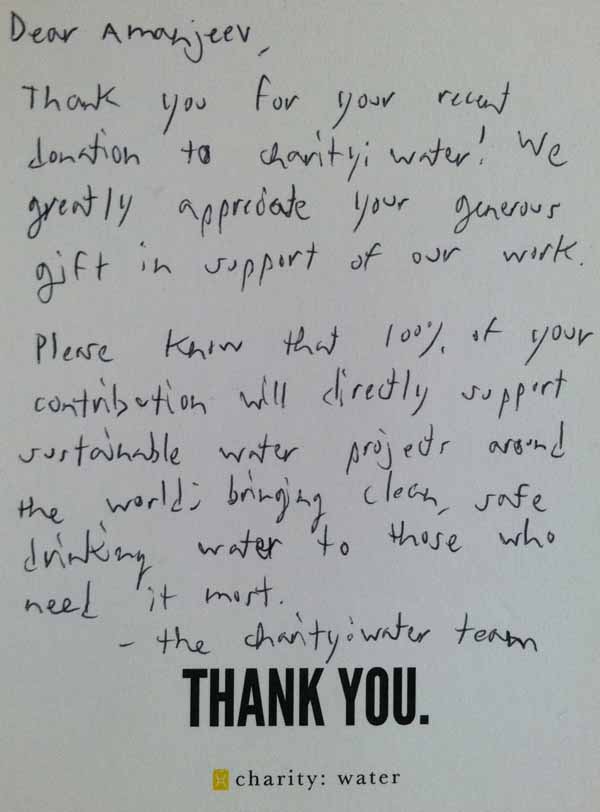 Dear Amanjeev,
Thank you for your recent
donation to charity: water! We
greatly appreciate your generous
gift in support of our work.
Please know that 100% of your
contribution will directly support
sustainable water projects around
the world; bringing clean, safe
drinking water to those who
need it most.
- the charity: water team
THANK YOU.
charity: water